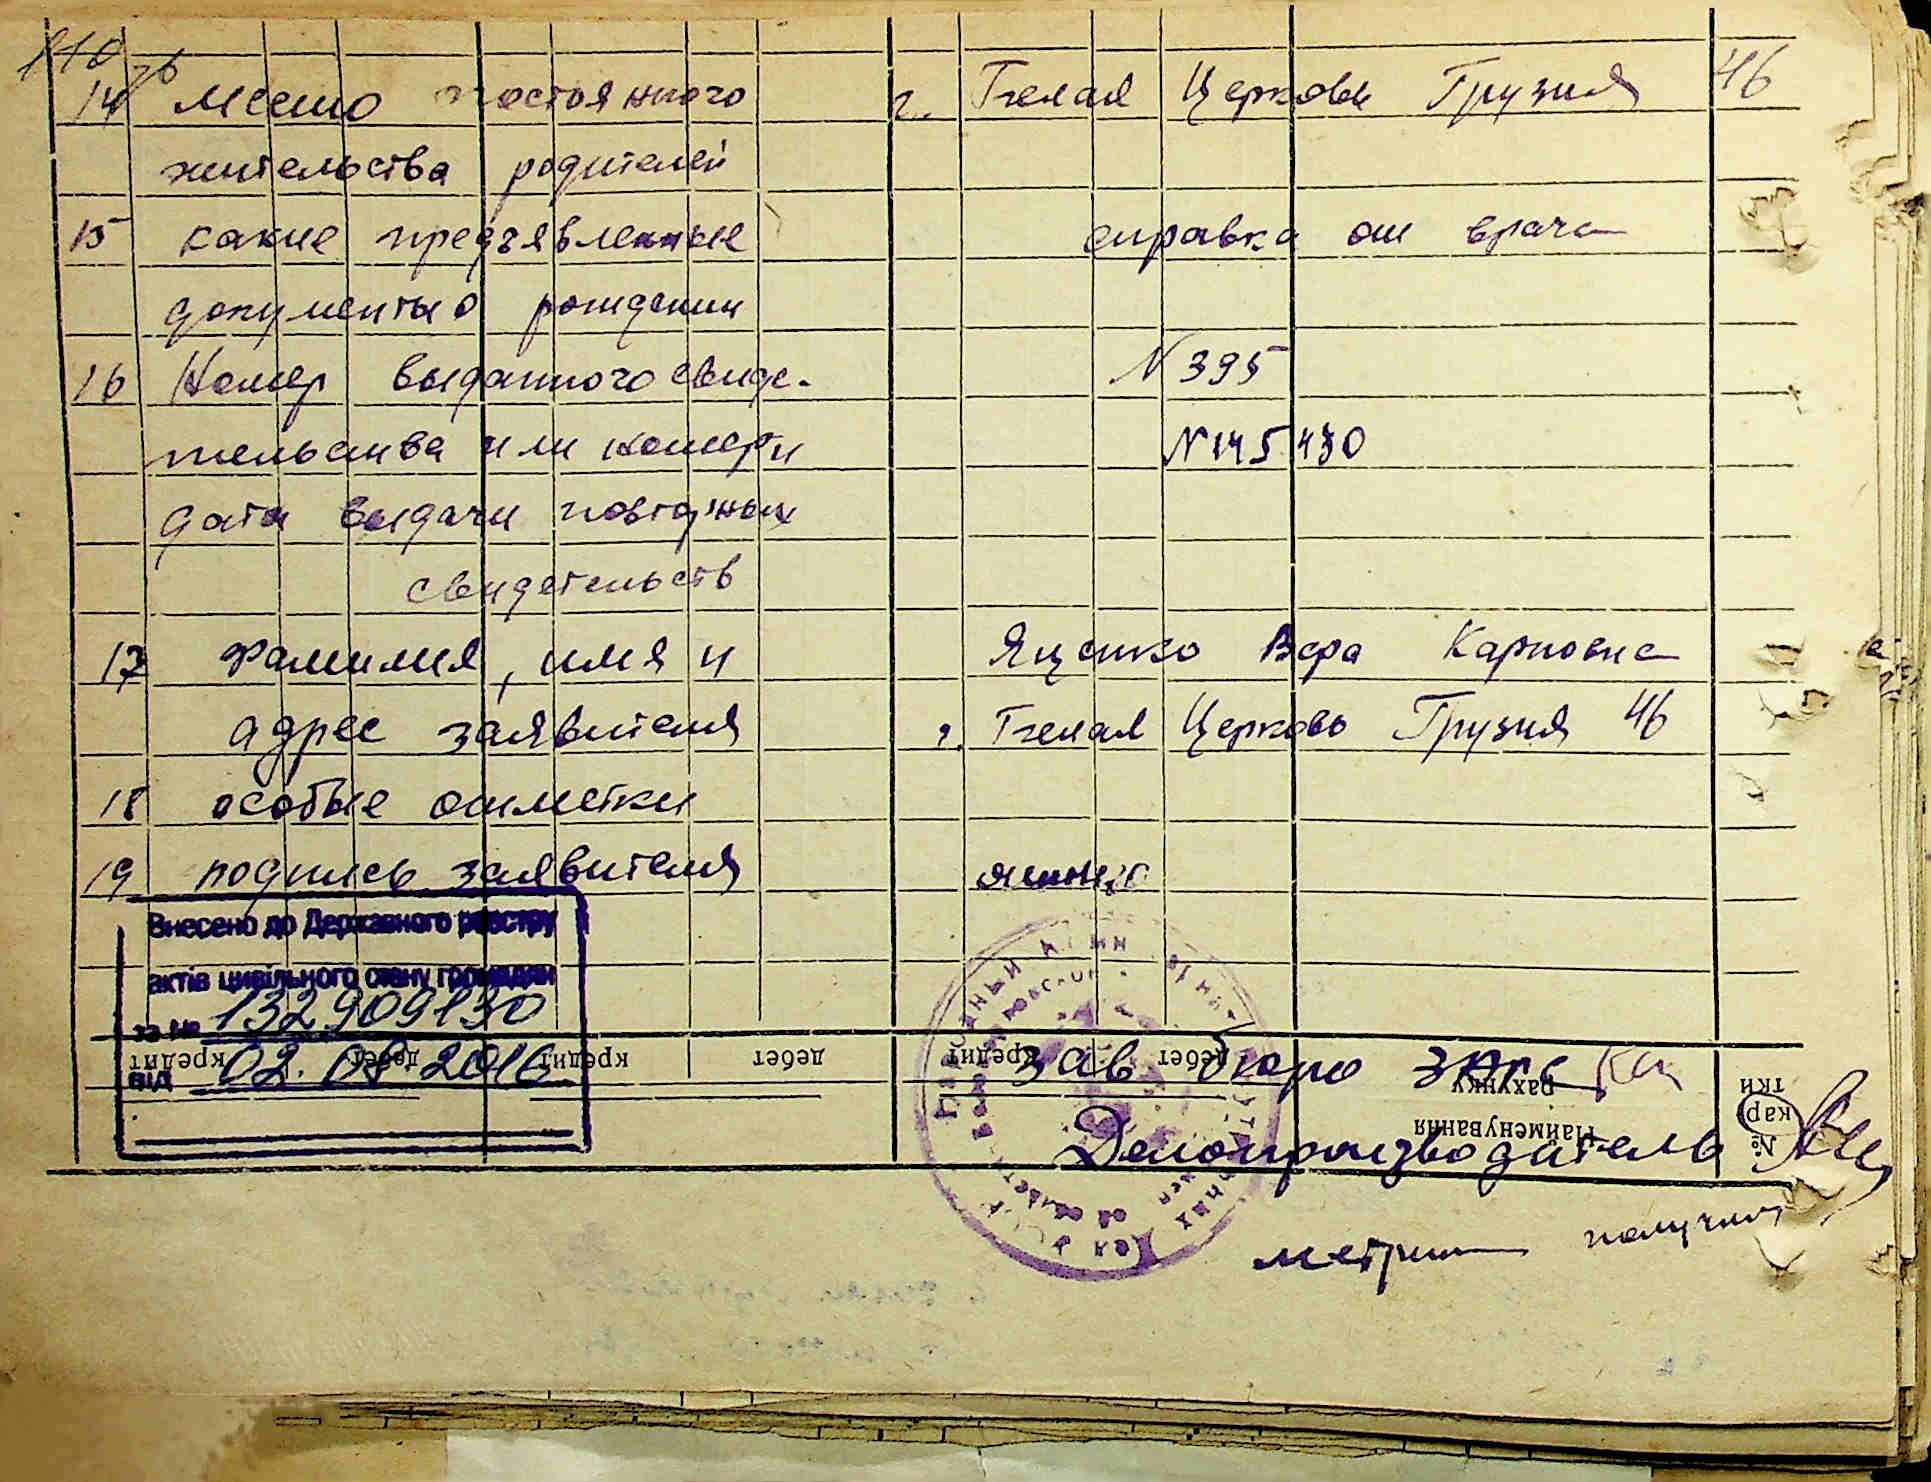 110 зв
14 Место постоянного г. Белая Церковь Грузия 46
жительства родителей
15 какие предъявленные справка от врача
документы о рождении
16 Номер выданного свиде- N 395
тельства или номер и N 145430
дата выдачи повторных
свидетельств
17 Фамилия, имя и Яценко Вера Карповна
адрес заявителя г. Белая Церковь Грузия 46
18 особые отметки
19 подпись заявителя Яценко
Внесено до Державного реєстру
актів цивільного стану громадян
за № 132909130
від 02.08.2016
кредит дебет кредит дебет кредит дебет Найменування рахунку № кар тки
зав бюро загс
Делопроизводитель
метрику получил